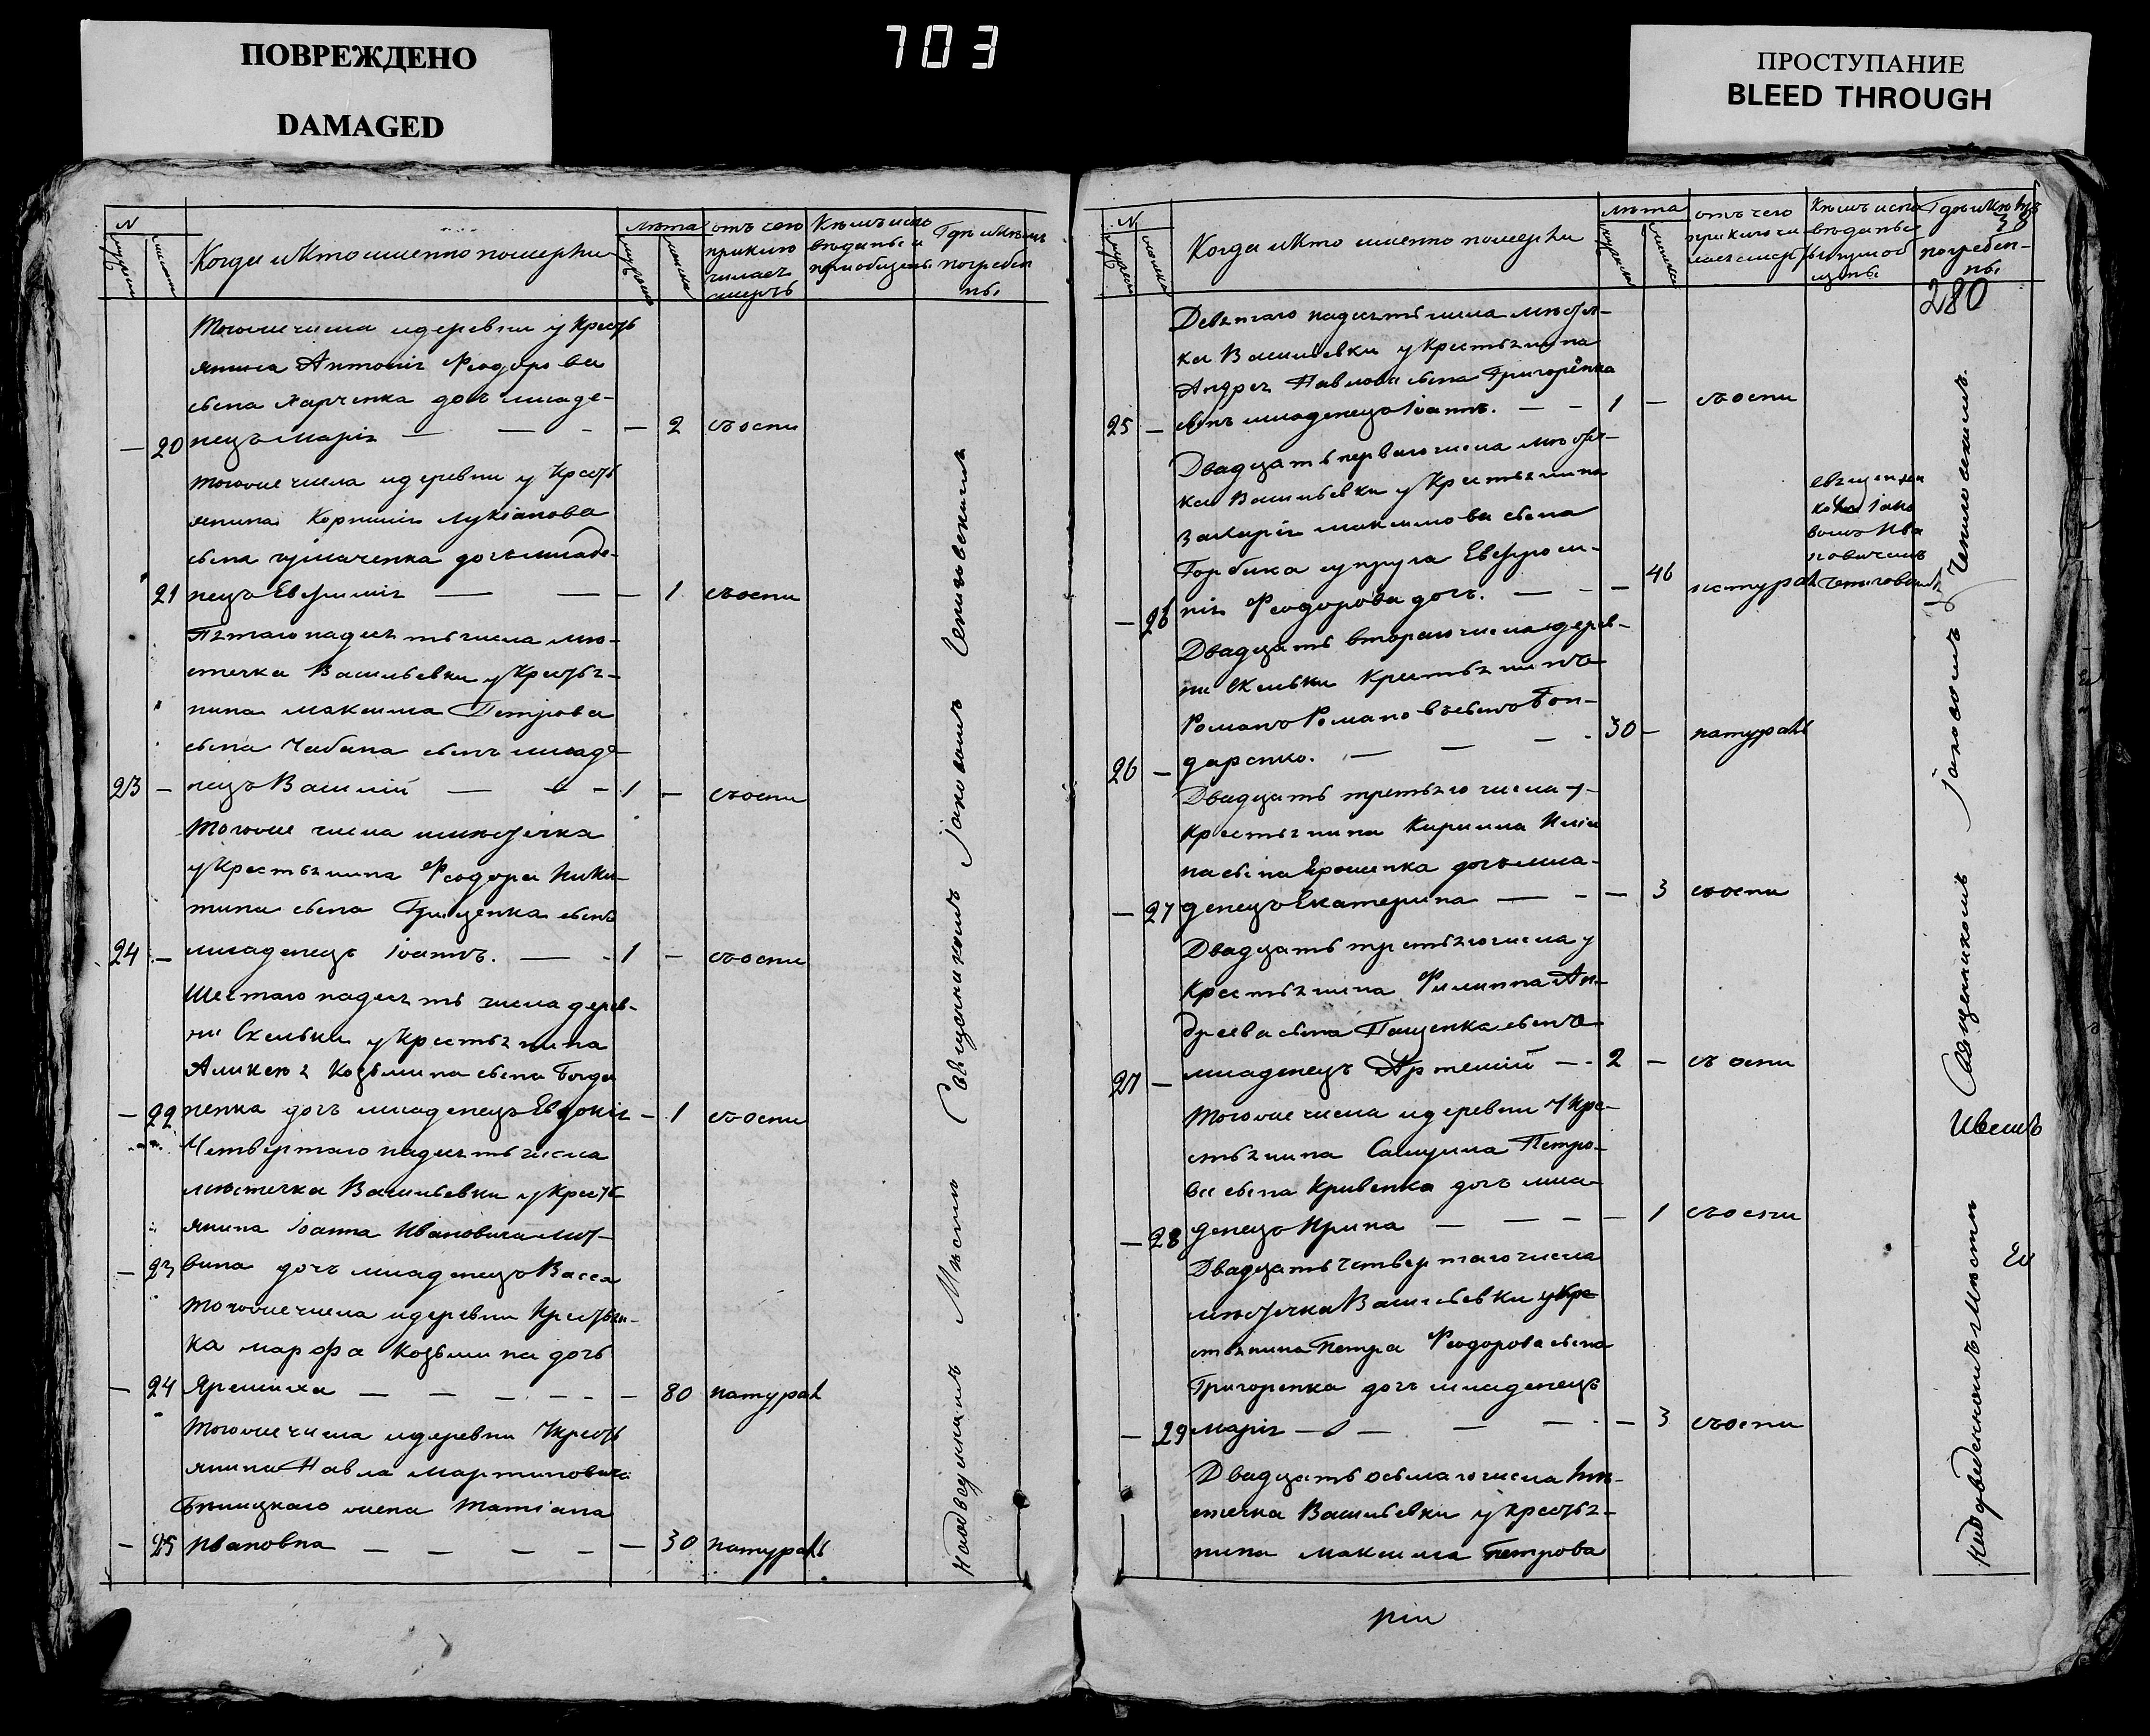 ПОВРЕЖДЕНО
DAMAGED
703
ПРОСТУПАНИЕ
BLEED THROUGH
N
Когда и Кто именно померли
лѣта
отъ чего
приклю
чилась
смерть
Кѣмъ испо
вѣданы и
приобщены
Гдѣ и Кѣмъ
погребе
ны
Тогоже числа и деревни у Крестъ
янина Антонія Феодорова
сына Харченка дочь младе-
— 20 нецъ Марія — — - — 2 съ оспи
Тогоже числа и деревни у Крестъ
янина Корнилія Лукіанова
сына дочь младе-
21 нецъ Евфимія — — — 1 съ оспи
Пятаго надесять числа мѣ-
стечка Василъевки у Крестья-
нина Максима Петрова
сына Чабана сынъ младе
23 — нецъ Василій — — - 1 — съ оспи
Тогоже числа и мѣстечка
у Крестьянина Феодора Ники-
тина сына Гриценка сынъ
24 — младенецъ Іоаннъ. — - 1 — съ оспи
Шестаго надесять числа дерев-
ни Скельки у Крестьянина
Алиѯея Козьмина сына Богда
— 22 ненка дочь младенецъ Евдокія — 1 съ оспи
Четвертаго надесять числа
мѣстечка Васильевки у Крестъ
янина Іоанна Ивановича Лит-
— 23 вина дочь младенецъ Васса
Тогоже числа и деревни Крестьян-
ка Марфа Козьмина дочь
— 24 Яремиха — — — - - — 80 натурал
Тогоже числа и деревни У Крестъ
янина Павла Мартиновича
Бѣлицкаго жена Татіана
— 25 Ивановна — — — — — 30 натураль
Кладвищнимъ Мѣстѣ Священникомъ Іаковомъ
N
Когда и Кто именно померли
лѣта
отъ чего
приключи
лась смерть
Кѣмъ испо
вѣданы
погребен-
ны
280
Девятаго надесять числа мѣстеч-
ка Васильевки у Крестьянина
Андрея Павлова сына Григоренка
25 — сынъ младенецъ Іоаннъ. — — 1 — съ оспи
Двадцать перваго числа мѣстеч-
ка Васильевки у Крестьянина
Захарія Максимова сына
Горбика супруга Евфроси-
— 26 нія Феодорова дочь. — - — 46 натурал
священни
комъ Іако
вомъ Ива
новичемъ
Двадцать втораго числа дерев-
ни Скельки Крестьянинъ
Романъ Романовъ сынъ Бон-
26 — даренко. — — — - 30 — натураль
Двадцать третьяго числа у
Крестьянина Кирилла Иліи
на сына Ярошенка дочь мла-
— 27 денецъ Екатерина — - — 3 съ оспи
Двадцать третьяго числа у
Крестьянина Филиппа Ан-
дреева сына Пащенка сынъ
27 — младенецъ Артемій — - 2 — съ оспи
Тогоже числа и деревни У Кре-
стьянина Самуила Петро-
ва сына Кривенка дочь мла-
— 28 денецъ Ирина — — — — 1 съ оспи
Двадцать четвертаго числа
мѣстечка Васильевки у Кре
стьянина Петра Феодорова сына
Григоренка дочь младенецъ
— 29 Марія — — — - — 3 съ оспи
Двадцать осьмаго числа мѣ-
стечка Васильевки у Крестья-
нина Максима Петрова
Мѣстѣ Священникомъ Іаковомъ